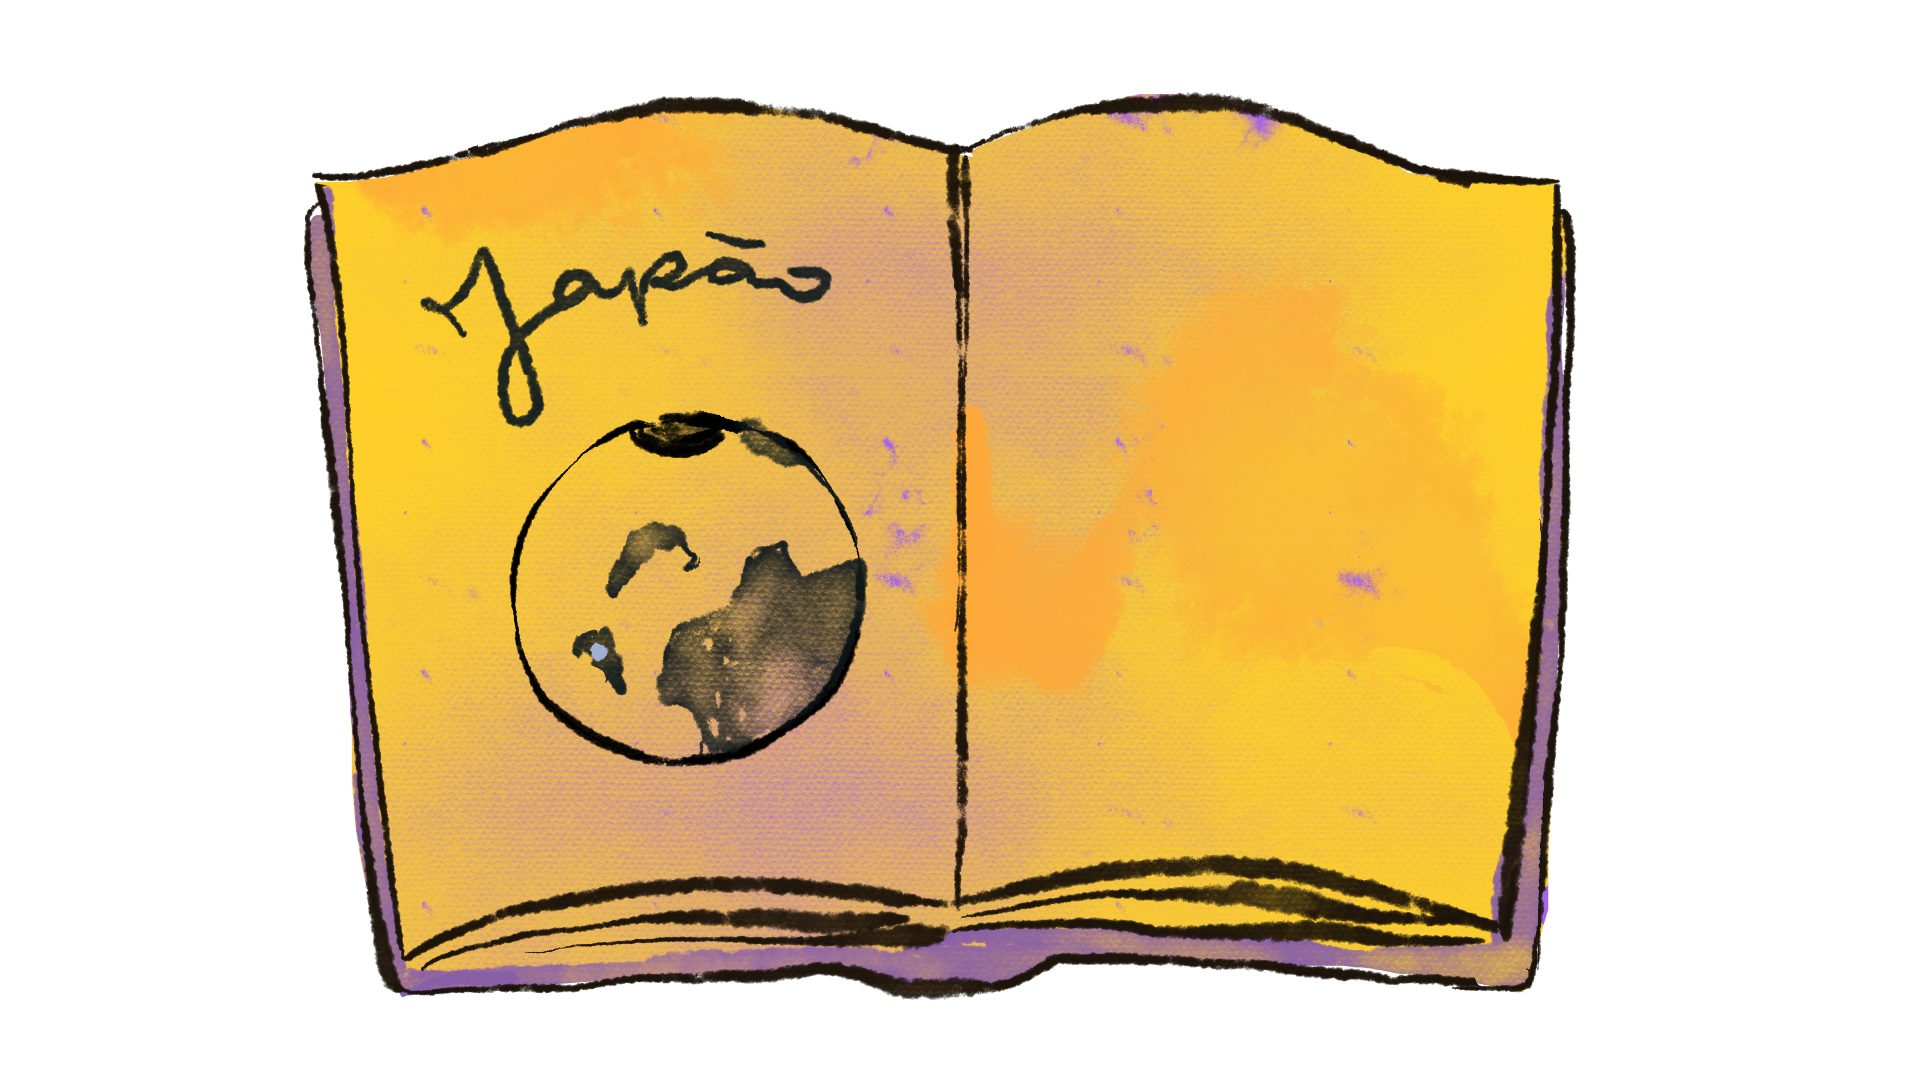 Japão